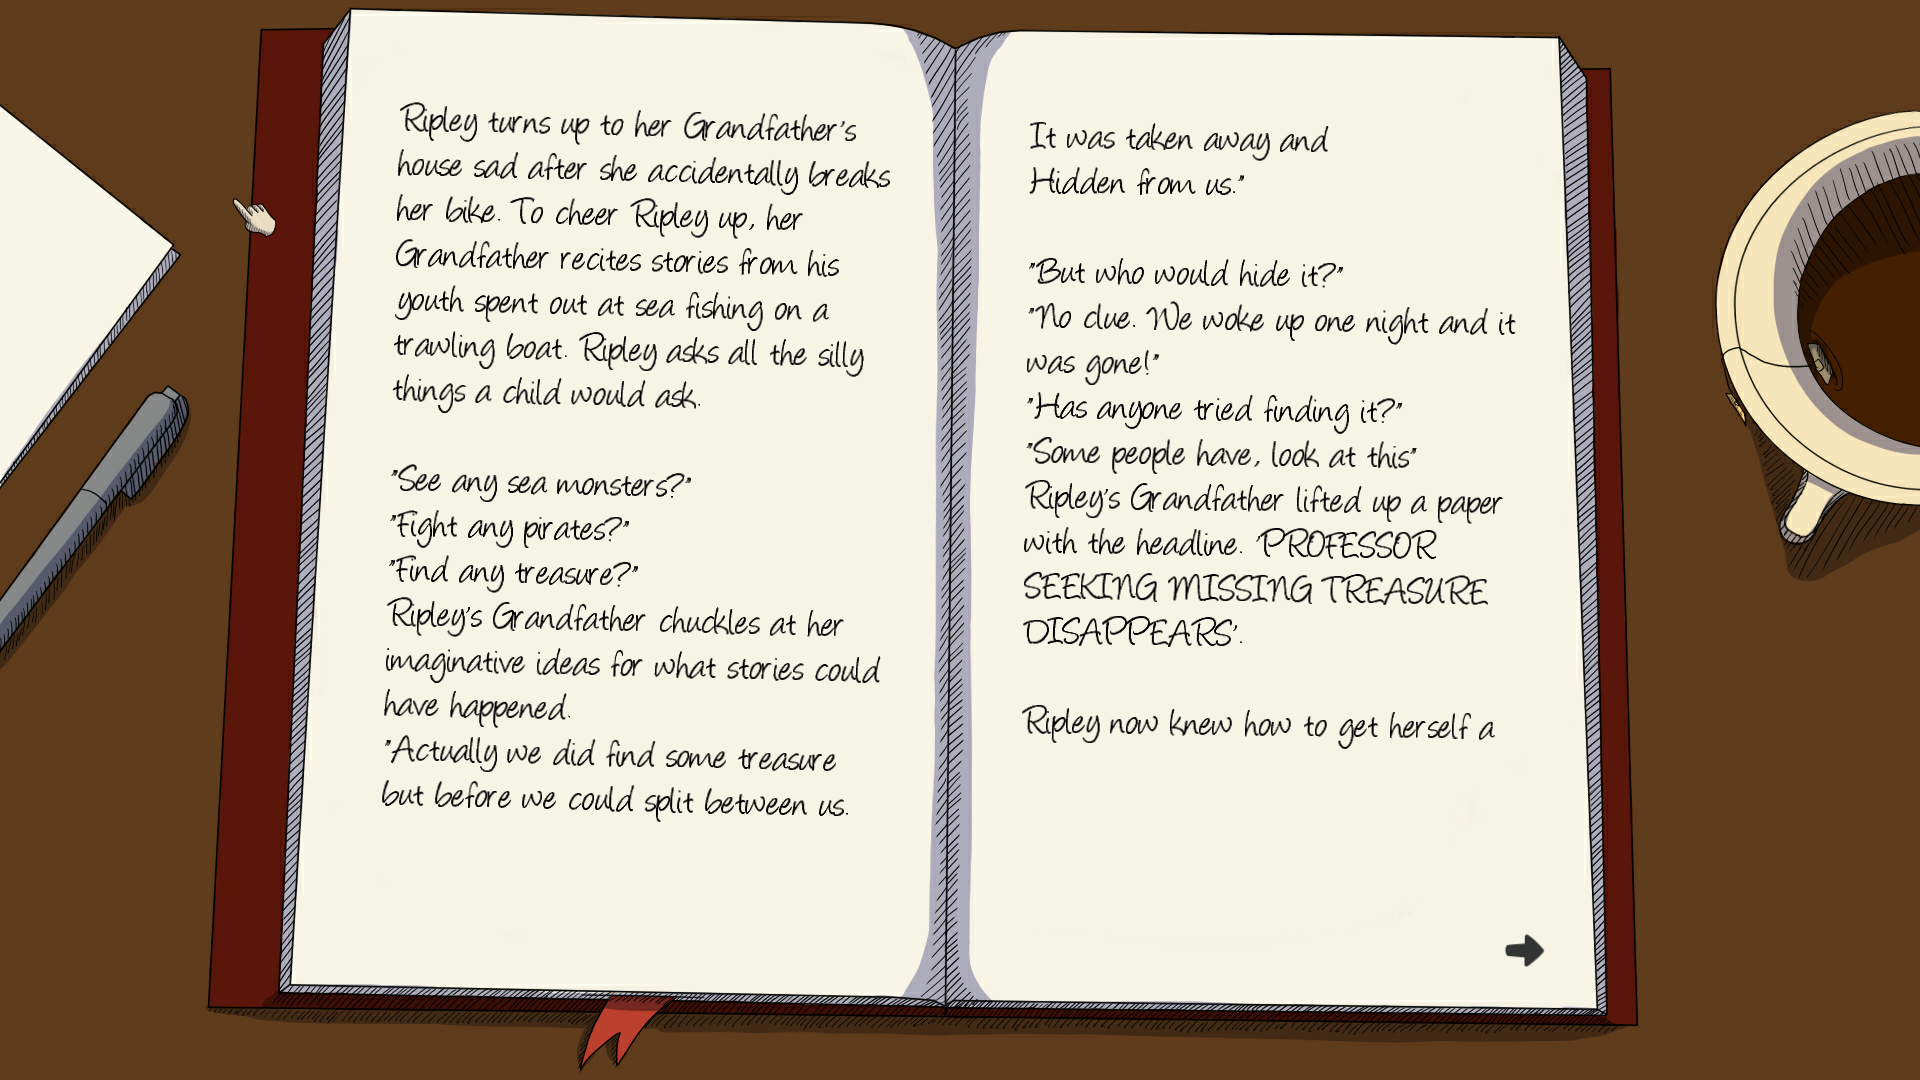 Ripley turns up to her Grandfather's
house sad after she accidentally breaks
her bike. To cheer Ripley up, her
Grandfather recites stories from his
youth spent out at sea fishing on a
trawling boat. Ripley asks all the silly
things a child would ask.
"See any sea monsters?"
"Fight any pirates?"
"Find any treasure?"
Ripley's Grandfather chuckles at her
imaginative ideas for what stories could
have happened.
"Actually we did find some treasure
but before we could split between us.
It was taken away and
Hidden from us."
"But who would hide it?"
"No clue. We woke up one night and it
was gone!"
"Has anyone tried finding it?"
"Some people have, look at this"
Ripley's Grandfather lifted up a paper
with the headline. 'PROFESSOR
SEEKING MISSING TREASURE
DISAPPEARS'.
Ripley now knew how to get herself a